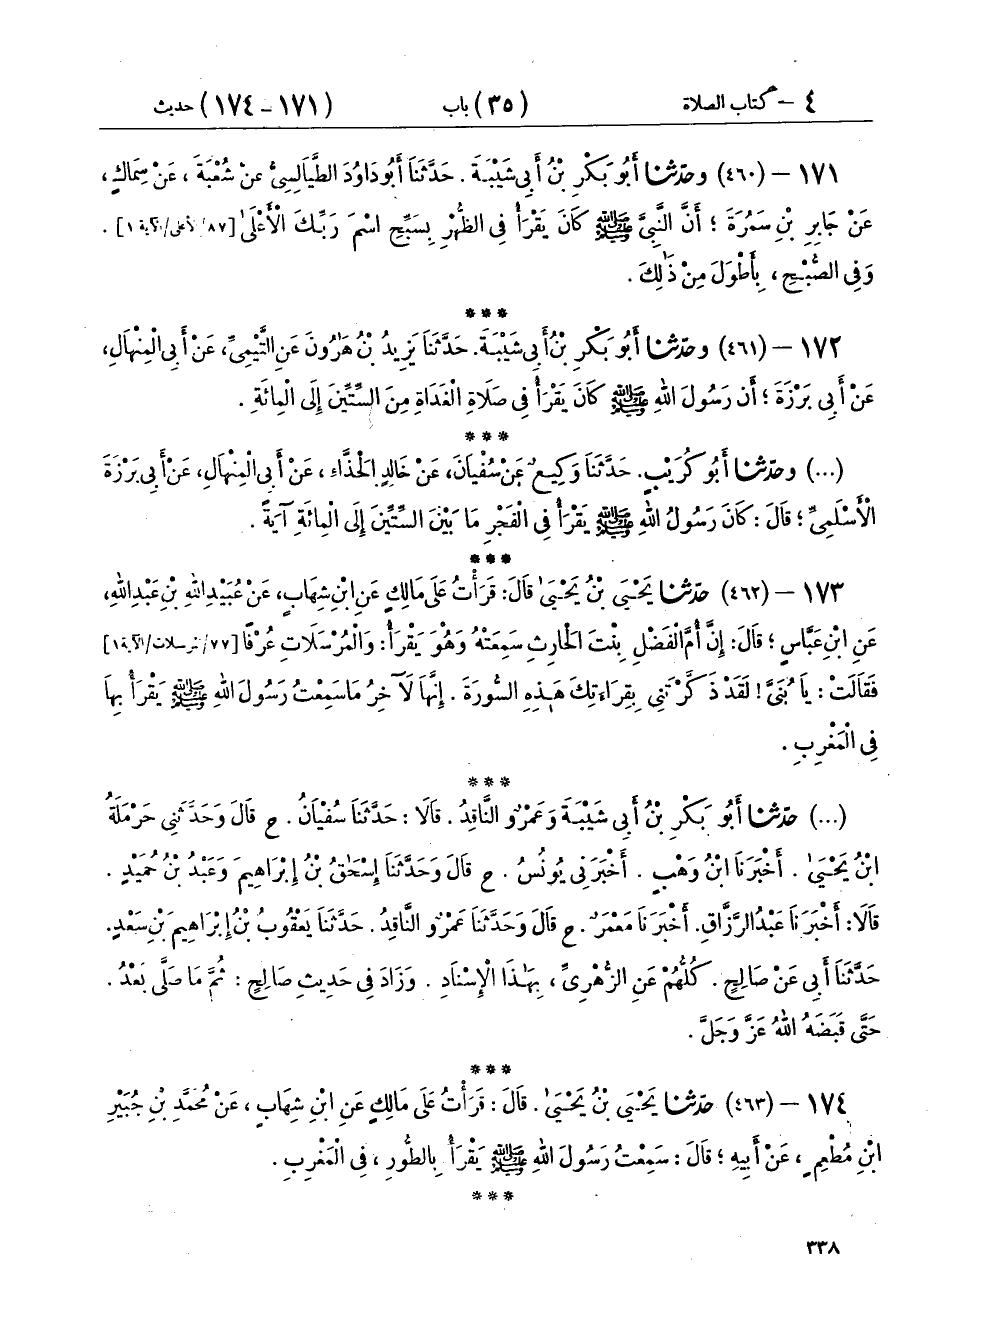 ٤ – كتاب الصلاة (٣٥) باب (١٧١ – ١٧٤) حديث
١٧١ – (٤٦٠) وحدّثنا أَبُو بَكْرِ بْنُ أَبِي شَيْبَةَ . حَدَّثَنَا أَبُو دَاوُدَ الطَّيَالِسِيُّ عَنْ شُعْبَةَ ، عَنْ سِمَاكٍ ،
عَنْ جَابِرِ بْنِ سَمُرَةَ ؛ أَنَّ النَّبِيَّ ﷺ كَانَ يَقْرَأُ فِي الظُّهْرِ بِسَبِّحِ اسْمَ رَبِّكَ الْأَعْلَىٰ [٨٧/الأعلى/الآية ١] .
وَفِي الصُّبْحِ ، بِأَطْوَلَ مِنْ ذَٰلِكَ .
***
١٧٢ – (٤٦١) وحدّثنا أَبُو بَكْرِ بْنُ أَبِي شَيْبَةَ. حَدَّثَنَا يَزِيدُ بْنُ هَارُونَ عَنِ التَّيْمِيِّ، عَنْ أَبِي الْمِنْهَالِ،
عَنْ أَبِي بَرْزَةَ ؛ أَن رَسُولَ اللهِ ﷺ كَانَ يَقْرَأُ فِي صَلَاةِ الْغَدَاةِ مِنَ السِّتِّينَ إِلَى الْمِائَةِ .
***
(...) وحدّثنا أَبُو كُرَيْبٍ. حَدَّثَنَا وَكِيعٌ عَنْ سُفْيَانَ، عَنْ خَالِدٍ الْحَذَّاءِ ، عَنْ أَبِي الْمِنْهَالِ، عَنْ أَبِي بَرْزَةَ
الْأَسْلَمِيِّ ؛ قَالَ : كَانَ رَسُولُ اللهِ ﷺ يَقْرَأُ فِي الْفَجْرِ مَا بَيْنَ السِّتِّينَ إِلَى الْمِائَةِ آيَةً .
***
١٧٣ – (٤٦٢) حدّثنا يَحْيَى بْنُ يَحْيَىٰ قَالَ: قَرَأْتُ عَلَى مَالِكٍ عَنِ ابْنِ شِهَابٍ، عَنْ عُبَيْدِ اللهِ بْنِ عَبْدِ اللهِ،
عَنِ ابْنِ عَبَّاسٍ ؛ قَالَ: إِنَّ أُمَّ الْفَضْلِ بِنْتَ الْحَارِثِ سَمِعَتْهُ وَهُوَ يَقْرَأُ: وَالْمُرْسَلَاتِ عُرْفًا [٧٧/المرسلات/الآية ١]
فَقَالَتْ : يَا بُنَيَّ ! لَقَدْ ذَكَّرْتَنِي بِقِرَاءَتِكَ هَٰذِهِ السُّورَةَ . إِنَّهَا لَآخِرُ مَا سَمِعْتُ رَسُولَ اللهِ ﷺ يَقْرَأُ بِهَا
فِي الْمَغْرِبِ .
***
(...) حدّثنا أَبُو بَكْرِ بْنُ أَبِي شَيْبَةَ وَعَمْرٌو النَّاقِدُ . قَالَا : حَدَّثَنَا سُفْيَانُ . ح قَالَ وَحَدَّثَنِي حَرْمَلَةُ
ابْنُ يَحْيَىٰ . أَخْبَرَنَا ابْنُ وَهْبٍ . أَخْبَرَنِي يُونُسُ . ح قَالَ وَحَدَّثَنَا إِسْحَٰقُ بْنُ إِبْرَاهِيمَ وَعَبْدُ بْنُ حُمَيْدٍ .
قَالَا: أَخْبَرَنَا عَبْدُ الرَّزَّاقِ. أَخْبَرَنَا مَعْمَرٌ . ح قَالَ وَحَدَّثَنَا عَمْرٌو النَّاقِدُ. حَدَّثَنَا يَعْقُوبُ بْنُ إِبْرَاهِيمَ بْنِ سَعْدٍ.
حَدَّثَنَا أَبِي عَنْ صَالِحٍ . كُلُّهُمْ عَنِ الزُّهْرِيِّ ، بِهَٰذَا الْإِسْنَادِ . وَزَادَ فِي حَدِيثِ صَالِحٍ : ثُمَّ مَا صَلَّى بَعْدُ .
حَتَّى قَبَضَهُ اللهُ عَزَّ وَجَلَّ .
***
١٧٤ – (٤٦٣) حدّثنا يَحْيَى بْنُ يَحْيَىٰ . قَالَ : قَرَأْتُ عَلَى مَالِكٍ عَنِ ابْنِ شِهَابٍ ، عَنْ مُحَمَّدِ بْنِ جُبَيْرِ
ابْنِ مُطْعِمٍ ، عَنْ أَبِيهِ ؛ قَالَ : سَمِعْتُ رَسُولَ اللهِ ﷺ يَقْرَأُ بِالطُّورِ ، فِي الْمَغْرِبِ .
***
٣٣٨